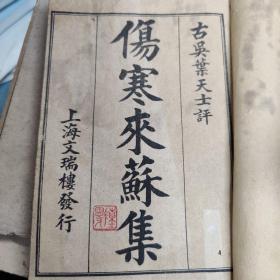 古吳葉天士評
傷寒來蘇集
上海文瑞樓發行
4